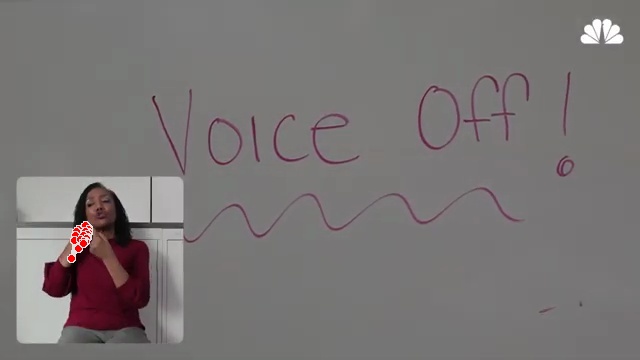 Voice Off!